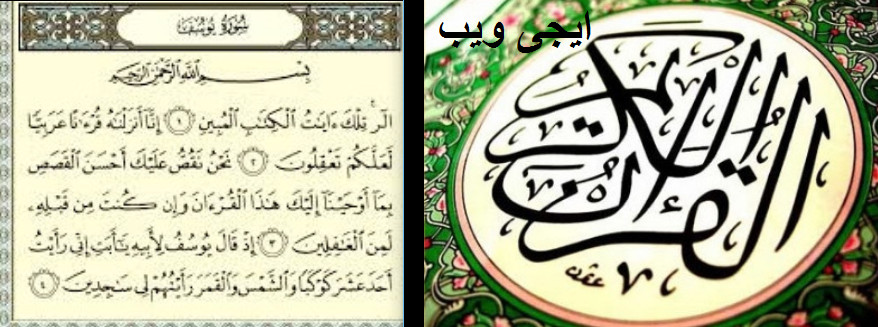 سُورَةُ يُوسُفَ
بِسْمِ اللَّهِ الرَّحْمَٰنِ الرَّحِيمِ
الٓر ۚ تِلْكَ ءَايَٰتُ الْكِتَٰبِ الْمُبِينِ ۝١ إِنَّآ أَنزَلْنَٰهُ قُرْءَٰنًا عَرَبِيًّا
لَّعَلَّكُمْ تَعْقِلُونَ ۝٢ نَحْنُ نَقُصُّ عَلَيْكَ أَحْسَنَ الْقَصَصِ
بِمَآ أَوْحَيْنَآ إِلَيْكَ هَٰذَا الْقُرْءَانَ وَإِن كُنتَ مِن قَبْلِهِۦ
لَمِنَ الْغَٰفِلِينَ ۝٣ إِذْ قَالَ يُوسُفُ لِأَبِيهِ يَٰٓأَبَتِ إِنِّي رَأَيْتُ
أَحَدَ عَشَرَ كَوْكَبًا وَالشَّمْسَ وَالْقَمَرَ رَأَيْتُهُمْ لِي سَٰجِدِينَ ۝٤
ايجى ويب
القرآن الكريم